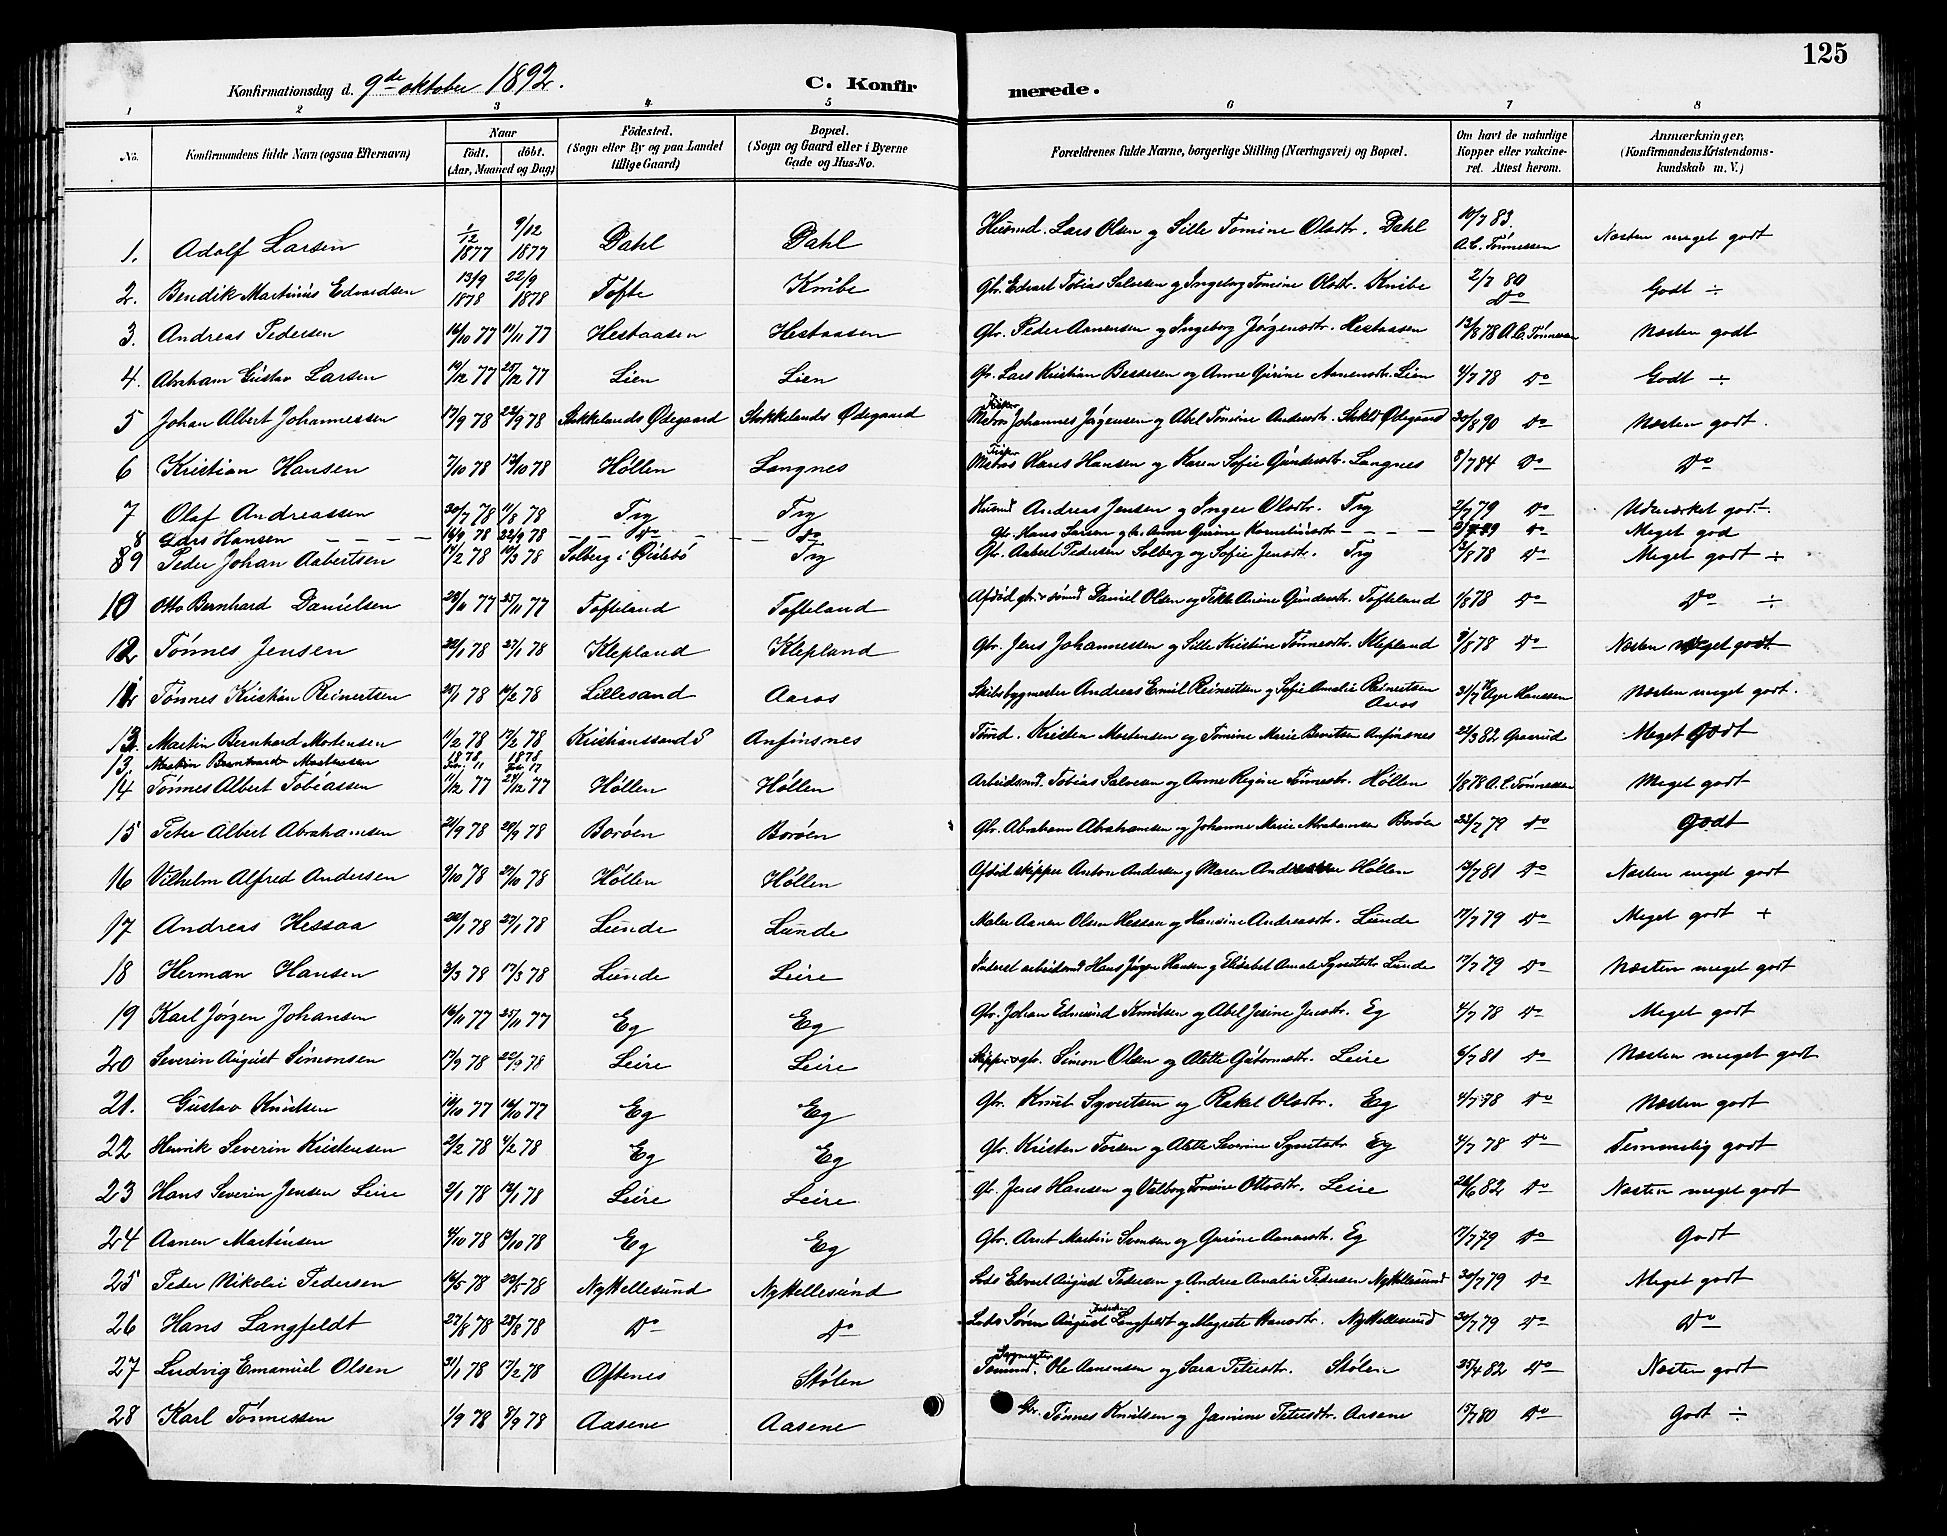 125
Konfirmationsdag d. 9de oktober 1892. C. Konfirmerede.
1 2 3 4 5 6 7 8
No. Konfirmandens fulde Navn (ogsaa Efternavn) Naar födt. döbt. (Aar, Maaned og Dag) Födested. (Sogn eller By og paa Landet tillige Gaard) Bopæl. (Sogn og Gaard eller i Byerne Gade og Hus-No. Forældrenes fulde Navne, borgerlige Stilling (Næringsvei) og Bopæl. Om havt de naturlige Kopper eller vakcineret. Attest herom. Anmærkninger. (Konfirmandens Kristendomskundskab m. V.)
1. Adolf Larsen 1/12 1877 9/12 1877 Dahl Dahl Husmd. Lars Olsen og Sille Tomine Olsdtr. Dahl 10/7 83. A.C. Tønnessen Næsten meget godt
2. Bendik Martinius Edvardsen 13/9 1878 22/9 1878 Tofte Knibe Gbr. Edvart Tobias Salvesen og Ingeborg Tomine Olsdtr. Knibe 2/7 80 Do Godt ÷
3. Andreas Pedersen 16/10 77 11/11 77 Hestaasen Hestaasen Gbr. Peder Aanensen og Ingeborg Jørgensdtr. Hestaasen 13/8 78 A.C. Tønnessen Næsten godt
4. Abraham Gustav Larsen 14/12 77 25/12 77 Lien Lien Gbr. Lars Kristian Bessesen og Anne Gurine Aanensdtr. Lien 4/7 78 Do Godt ÷
5 Johan Albert Johannessen 17/9 78 22/9 78 Stokkelands Ødegaard Stokkelands Ødegaard Fisker Johannes Jørgensen og Abel Tomine Andersdtr. Stokld Ødegaard 30/8 90 Do Næsten godt.
6 Kristian Hansen 7/10 78 13/10 78 Høllen Langnes Fisker Matros Hans Hansen og Karen Sofie Gundersdtr. Langnes 8/7 84 Do Do
7 Olaf Andreassen 30/7 78 11/8 78 Try Try Husmd Andreas Jensen og Inger Olsdtr. Try 2/7 79 Do Udmærket godt
8 Lars Hansen 16/9 78 22/9 78 Do Do Gbr. Hans Larsen og h. Anne Gurine Korneliusdtr Do Meget god
9 Peder Johan Aabertsen 17/2 78 17/3 78 Solberg i Øislebø Try Gbr. Aabert Pedersen Solberg og Sofie Jensdtr. Try 13/8 78 Do Meget godt ÷
10 Otto Bernhard Danielsen 23/11 77 25/11 77 Tofteland Tofteland Afdød gbr. Daniel Olsen og Tekla Anine Gundersdtr. Tofteland 1/8 78 Do Do ÷
12 Tønnes Jensen 22/1 78 27/1 78 Klepland Klepland Gbr. Jens Johannessen og Sille Kristine Tønnesdtr. Klepland 9/8 78 Do Næsten meget godt
Tønnes Kristian Reinertsen 25/1 78 17/2 78 Lillesand Aaros Skibsbygmester Andreas Emil Reinertsen og Sofie Amalie Reinertsen Aaros Næsten meget godt.
13. Martin Bernhard Mortensen 11/2 78 17/2 78 Kristianssands Anfinsnes Tømd. Kristen Mortensen og Tomine Marie Berntsen Anfinsnes 22/3 82 Graarud Meget Godt
13. Martin Bernhard Mortensen 1878 Feb. 11 1878 Feb 17
14 Tønnes Albert Tobiassen 11/12 77 28/12 77 Høllen Høllen Arbeidsmd. Tobias Salvesen og Anne Regine Tønnesdtr. Høllen 1/8 78 A.C. Tønnessen Meget godt
15 Peter Albert Abrahamsen 21/9 78 29/9 78 Borøen Borøen Gbr. Abraham Abrahamsen og Johanne Marie Abrahamsen Borøen 23/7 79 Do Godt
16 Vilhelm Alfred Andersen 9/10 78 27/10 78 Høllen Høllen Afdød skipper Anton Andersen og Maren Andersen Høllen 13/7 81 Do Næsten meget godt
17 Andreas Hessaa 22/1 78 27/1 78 Lunde Lunde Maler Aanen Olsen Hessaa og Hansine Andreasdtr. Lunde 17/7 79 Do Meget godt +
18 Herman Hansen 3/3 78 17/3 78 Lunde Leire arbeidsmd Hans Jørgen Hansen og Elisabet Amalie Syvertsdtr Lunde 17/7 79 Do Næsten meget godt
19 Karl Jørgen Johansen 16/11 77 25/11 77 Eg Eg Gbr. Johan Edmund Knudsen og Abel Jesine Jensdtr. Eg 4/7 78 Do Meget godt
20 Severin August Simonsen 17/9 78 22/9 78 Leire Leire Skipper & gbr. Simon Olsen og Alette Gutormsdtr. Leire 6/7 81 Do Næsten meget godt
21. Gustav Knudsen 10/10 77 16/10 77 Eg Eg Gbr. Knut Syvertsen og Rakel Olsdtr. Eg 4/7 78 Do Næsten godt
22 Henrik Severin Kristensen 2/2 78 4/2 78 Eg Eg Gbr. Kristen Torsen og Alette Severine Syvertsdtr Eg 4/7 78 Do Temmelig godt
23 Hans Severin Jensen Leire 2/1 78 13/1 78 Leire Leire Gbr. Jens Hansen og Valborg Tomine Ottosdtr. Leire 26/6 82 Do Næsten meget godt
24 Aanen Martinsen 4/10 78 13/10 78 Eg Eg Gbr. Arnt Martin Svensen og Gurine Aanensdtr. Eg 17/7 79 Do Godt
25 Peder Nikolai Pedersen 16/5 78 23/5 78 Ny Hellesund Ny Hellesund Lods Edvart August Pedersen og Andrea Amalie Pedersen Ny Hellesund 30/7 79 Do Meget godt
26 Hans Langfeldt 27/8 78 28/8 78 Do Do Lods Søren August Langfeldt og Megrete Hansdtr. Ny Hellesund 30/7 79 Do Do
27 Ludvig Emanuel Olsen 31/1 78 17/2 78 Oftenes Stølen Tømmd. Ole Aanensen og Sara Petersdtr. Stølen 25/4 82 Do Næsten godt
28 Karl Tønnessen 1/9 78 8/9 78 Aasene Aasene Gbr. Tønnes Knudsen og Jamine Petersdtr. Aasene 15/7 80 Do Godt ÷